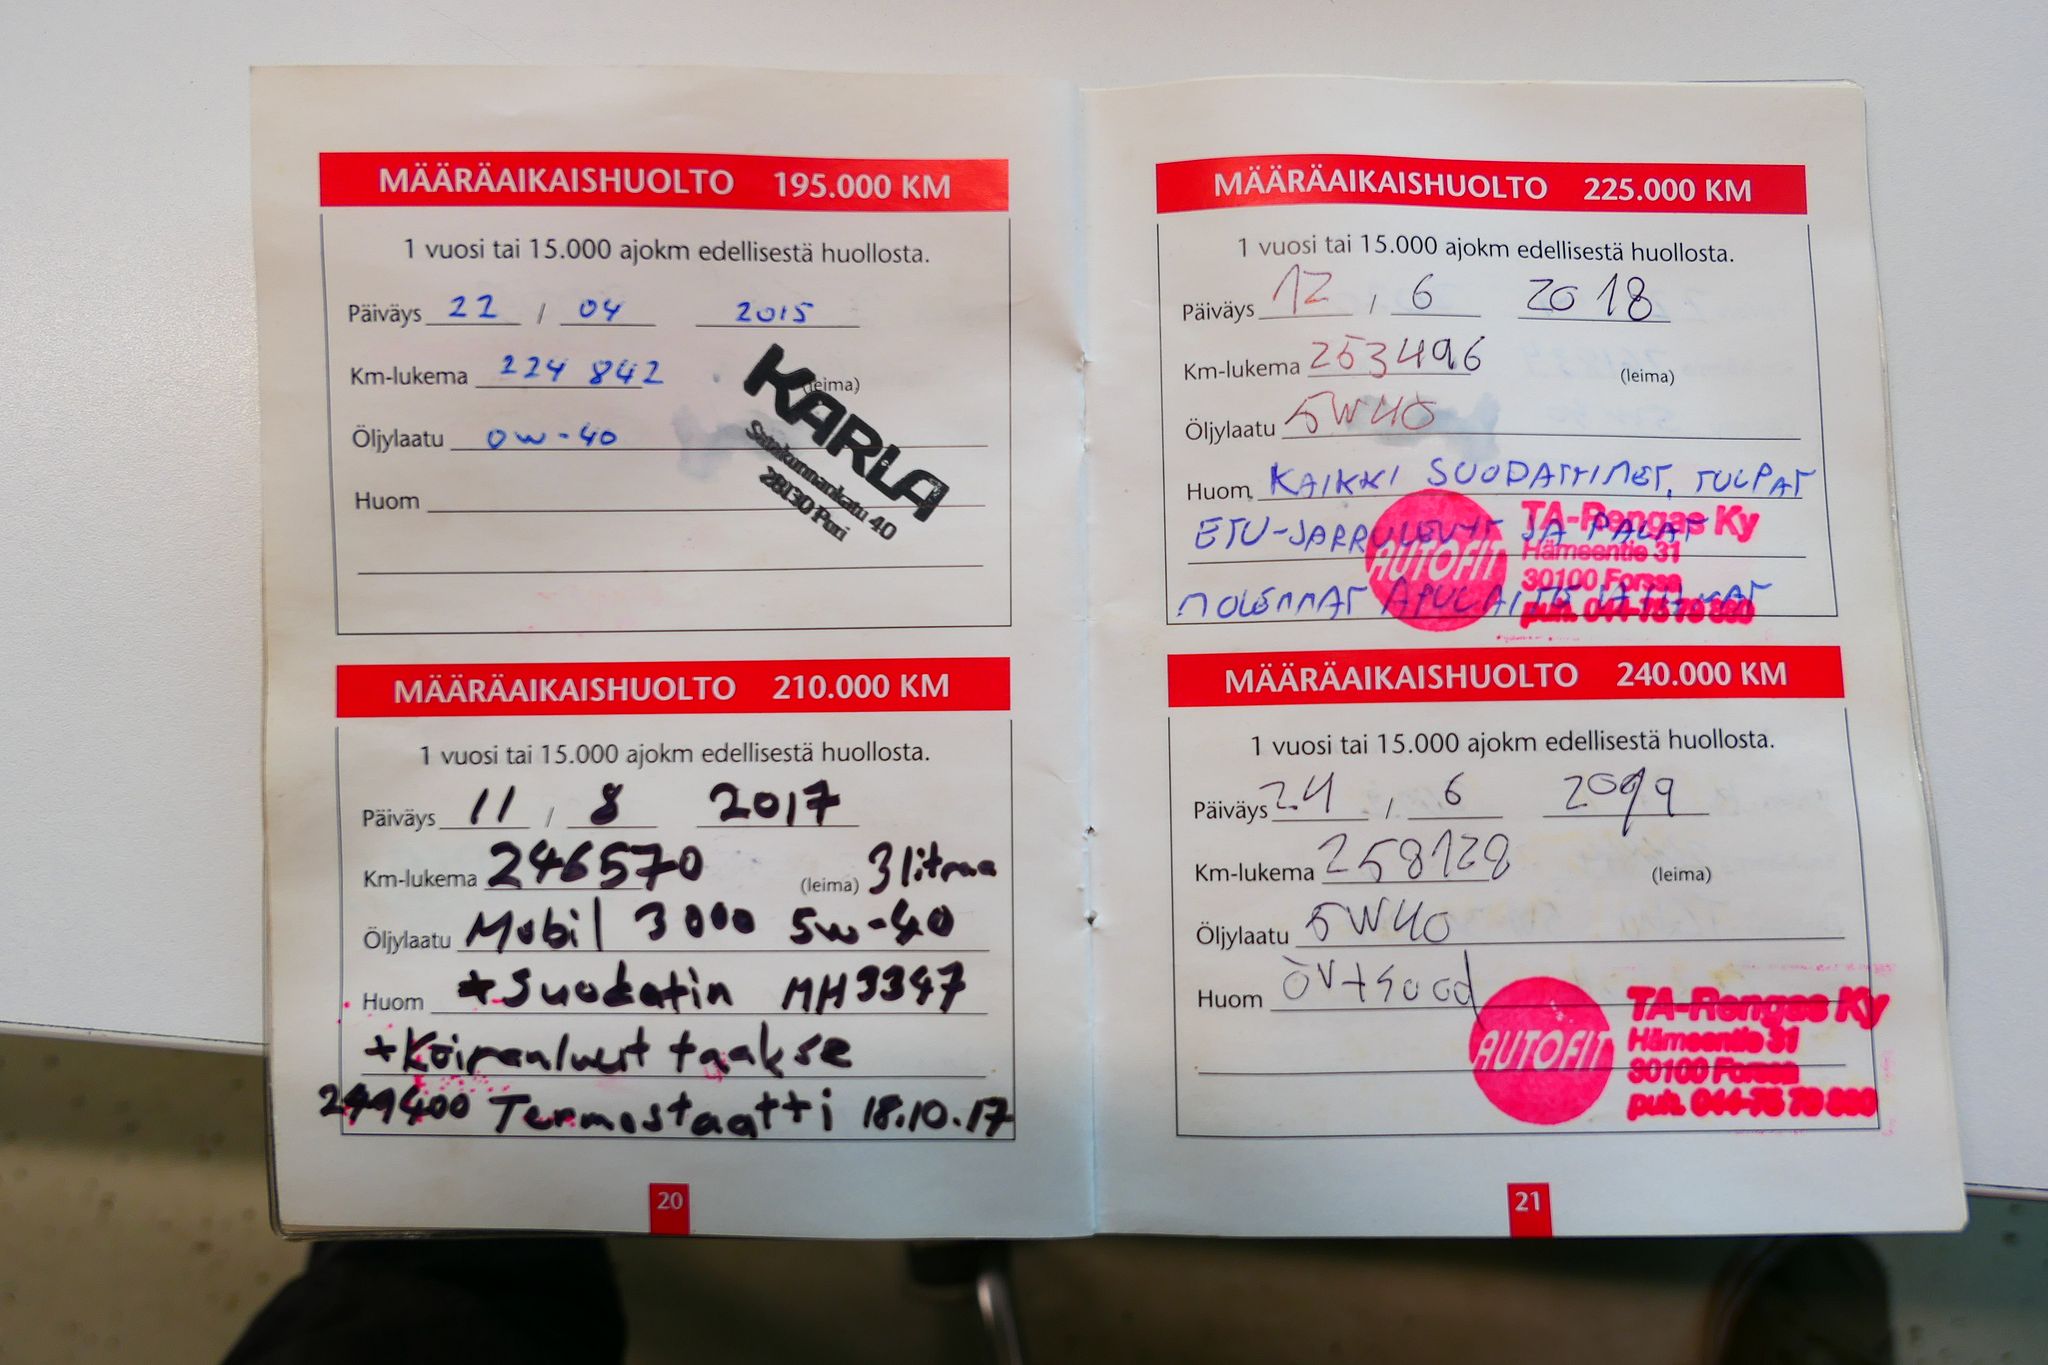 MÄÄRÄAIKAISHUOLTO 195.000 KM
1 vuosi tai 15.000 ajokm edellisestä huollosta.
Päiväys 22 / 04 2015
Km-lukema 224 842 (leima)
Öljylaatu 0W-40
Huom
KARLA
Satakunnankatu 40
28130 Pori
MÄÄRÄAIKAISHUOLTO 210.000 KM
1 vuosi tai 15.000 ajokm edellisestä huollosta.
Päiväys 11 / 8 2017
Km-lukema 246570 (leima) 3 litraa
Öljylaatu Mobil 3000 5w-40
Huom *Suodatin MH3347
+Koiranluut taakse
249400 Termostaatti 18.10.17
20
MÄÄRÄAIKAISHUOLTO 225.000 KM
1 vuosi tai 15.000 ajokm edellisestä huollosta.
Päiväys 12 / 6 2018
Km-lukema 253496 (leima)
Öljylaatu 5W40
Huom KAIKKI SUODATTIMET, TULPAT
ETU-JARRULEVYT JA PALAT
MOLEMMAT APULAITE
AUTOFIT
TA-Rengas Ky
Hämeentie 31
30100 Forssa
puh.
MÄÄRÄAIKAISHUOLTO 240.000 KM
1 vuosi tai 15.000 ajokm edellisestä huollosta.
Päiväys 24 / 6 2019
Km-lukema 258128 (leima)
Öljylaatu 5W40
Huom ÖV+suod
AUTOFIT
TA-Rengas Ky
Hämeentie 31
30100 Forssa
puh.
21